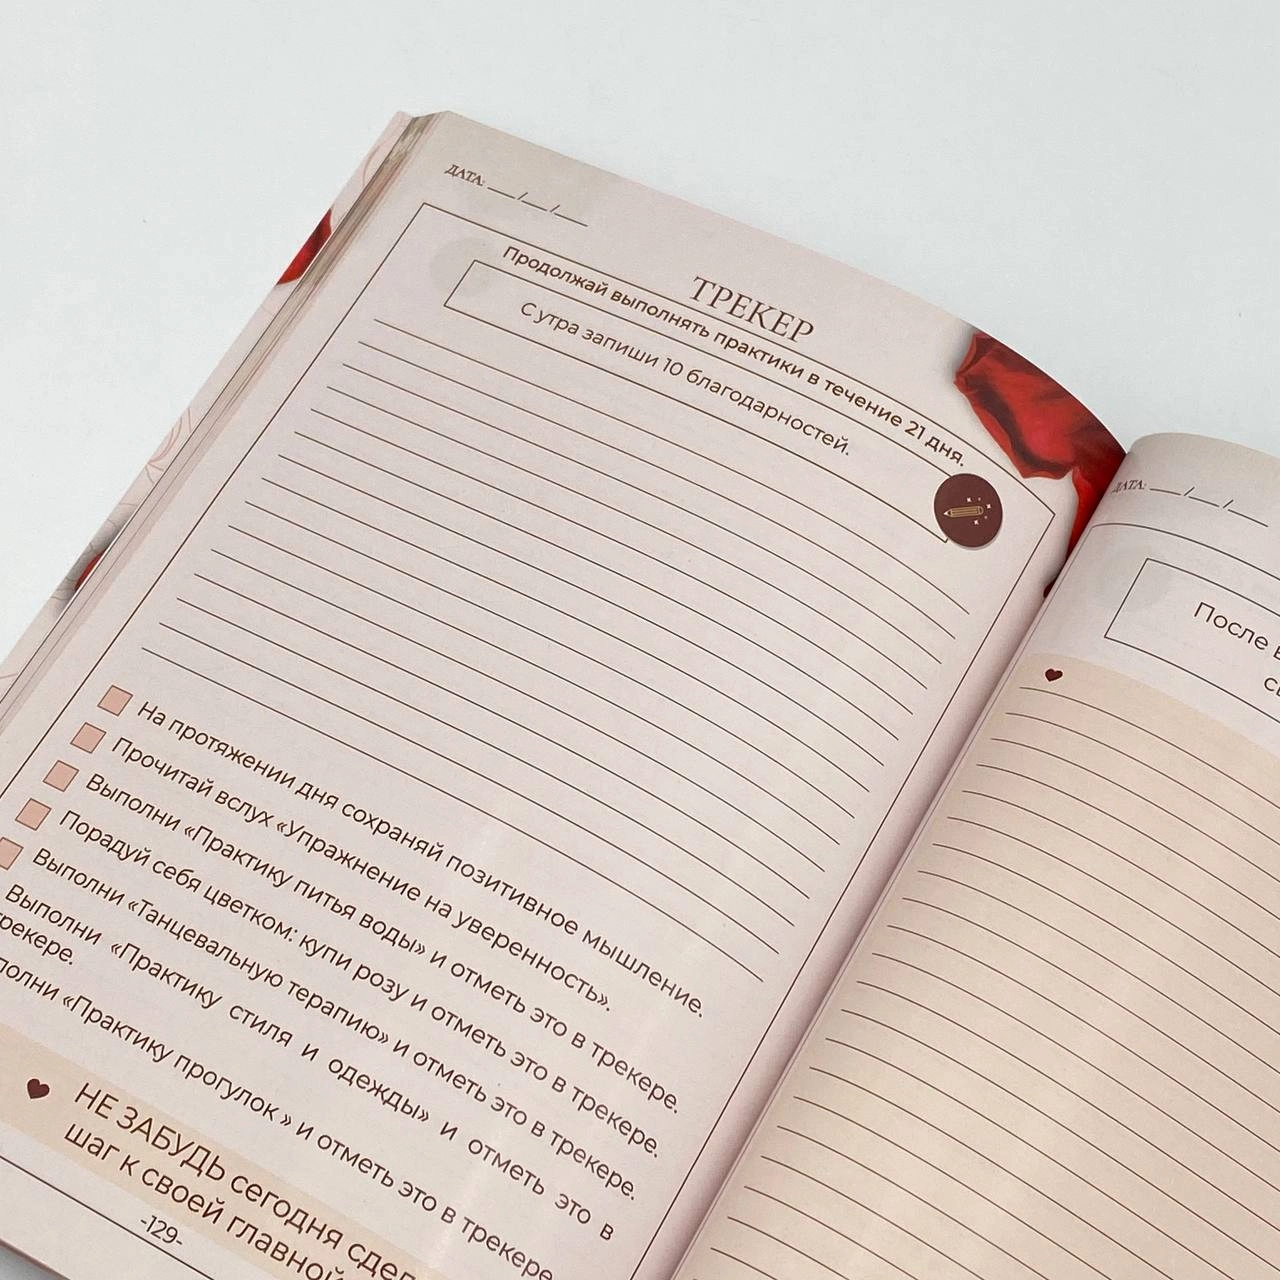 ДАТА: __/__/__
ТРЕКЕР
Продолжай выполнять практики в течение 21 дня.
С утра запиши 10 благодарностей.
На протяжении дня сохраняй позитивное мышление.
Прочитай вслух «Упражнение на уверенность».
Выполни «Практику питья воды» и отметь это в трекере.
Порадуй себя цветком: купи розу и отметь это в трекере.
Выполни «Танцевальную терапию» и отметь это в трекере.
Выполни «Практику стиля и одежды» и отметь это в
трекере.
«Практику прогулок » и отметь это в трекере
НЕ ЗАБУДЬ сегодня
шаг к своей главной
-129-
ДАТА: __/__/__
После